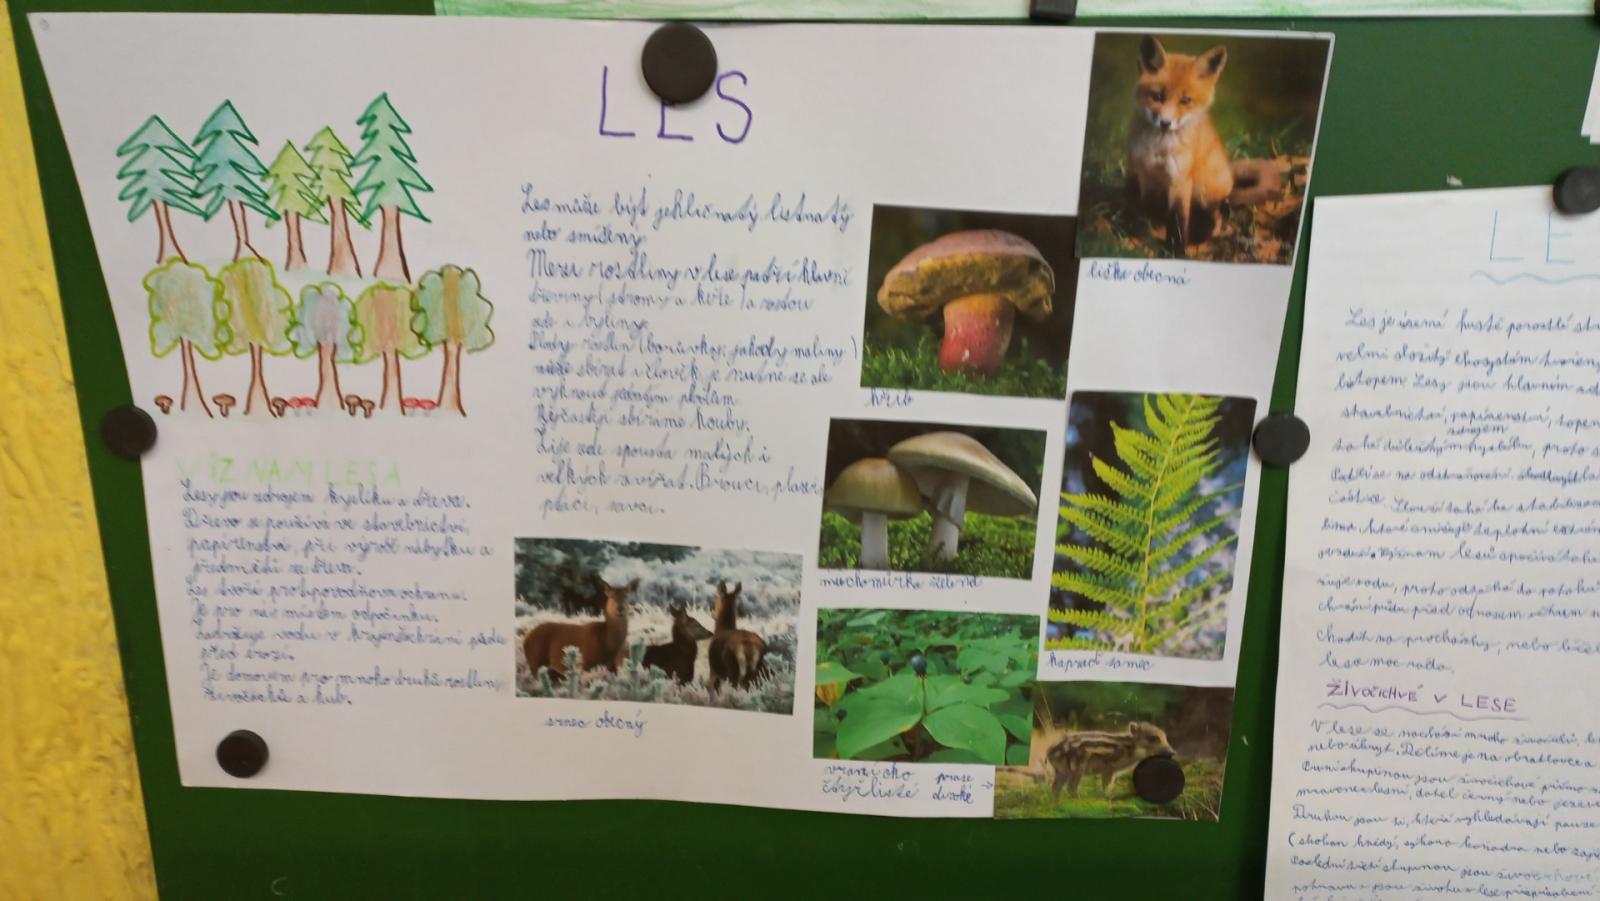 LES
Les může být jehličnatý, listnatý
nebo smíšený.
Mezi rostliny v lese patří hlavní
dřeviny (stromy a keře) a rostou
zde i byliny.
Plody rostlin (borůvky, jahody, maliny)
může sbírat i člověk, je nutné se ale
vyhnout jedovatým plodům.
Nejčastěji sbíráme houby.
Žije zde spousta malých i
velkých zvířat. Brouci, plazi,
ptáci, savci.
VÝZNAM LESA
Lesy jsou zdrojem kyslíku a dřeva.
Dřevo se používá ve stavebnictví,
papírenství, při výrobě nábytku a
předmětů ze dřeva.
Les tvoří protipovodňovou ochranu.
Je pro nás místem odpočinku.
Zadržuje vodu v krajině chrání půdu
před erozí.
Je domovem pro mnoho druhů rostlin,
živočichů a hub.
srnec obecný
liška obecná
hřib
muchomůrka zelená
kapraď samec
vraní oko
čtyřlisté
prase →
divoké
LE
Les je území hustě porostlé
velmi složitý ekosystém
Lesy jsou hlavním
stavebnictví, papírenství,
zdrojem
také důležitým kyslíku, proto
lesů spočívá
vodu, proto
chrání půdu před odnosem větrem
chodit na procházky, nebo
lesa moc ráda.
ŽIVOČICHVÉ V LESE
V lese se nachází mnoho živočichů,
nebo úkryt. Dělíme je na obratlovce a
První skupinou jsou živočichové přímo
mravenec lesní, datel černý nebo
Druhou jsou ti, kteří vyhledávají pouze
(skokan hnědý, sýkora koňadra nebo
Poslední třetí skupinou jsou